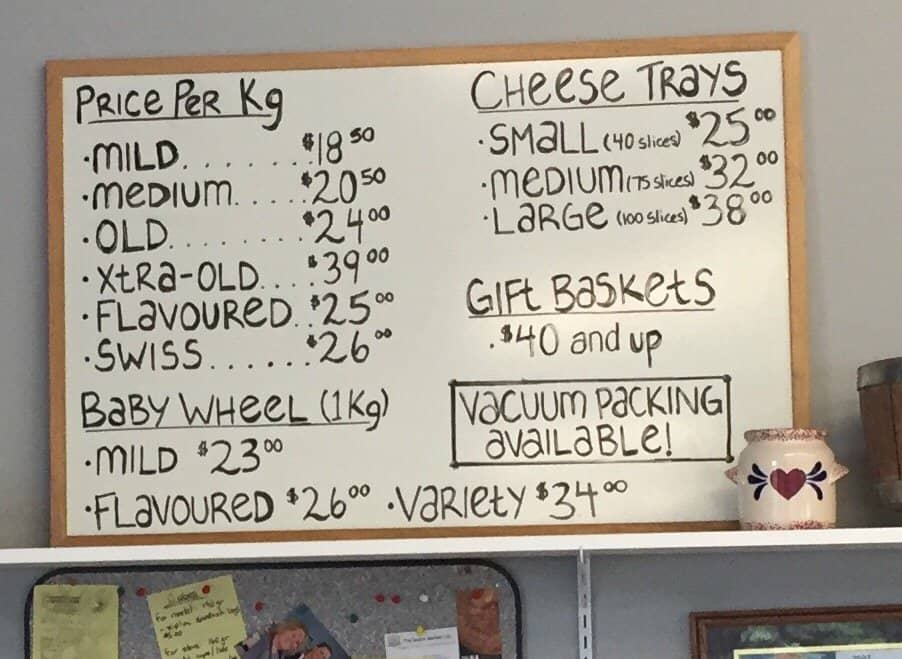 PRICE PER Kg
·MILD.......$18.50
·MEDIUM.....$20.50
·OLD........$24.00
·XTRA-OLD....$39.00
·FLAVOURED..$25.00
·SWISS......$26.00
BABY WHEEL (1Kg)
·MILD $23.00
·FLAVOURED $26.00 ·VARIETY $34.00
CHEESE TRAYS
·SMALL (40 slices) $25.00
·MEDIUM (75 slices) $32.00
·LARGE (100 slices) $38.00
GIFT BASKETS
·$40 and up
VACUUM PACKING
AVAILABLE!